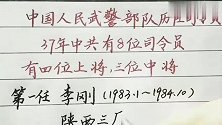 中国人民武警部队历任司令员
37年中共有8位司令员
有四位上将，三位中将
第一任 李刚（1983.1～1984.10）
陕西三厂